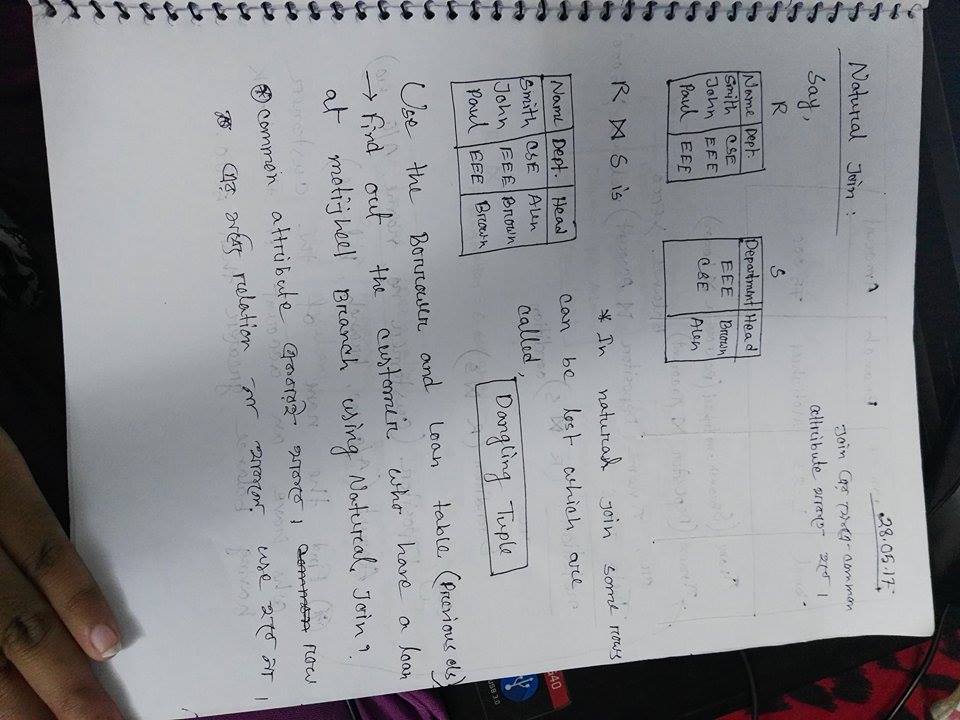 28.05.17
Natural Join :
Join এর সময় common
attribute থাকতে হবে।
Say,
R
S
Name Dept.
Smith CSE
John EEE
Paul EEE
Department Head
EEE Brown
CSE Alen
R ⋈ S is
Name Dept. Head
Smith CSE Alen
John EEE Brown
Paul EEE Brown
* In natural join some rows
can be lost which are
called,
Dangling Tuple
Use the Borrower and loan table (Previous cls)
→ Find out the customer who have a loan
at motijheel Branch using Natural Join?
common attribute থাকতে। row
এর মধ্যে relation না থাকলে use হবে না।
40
USB 3.0